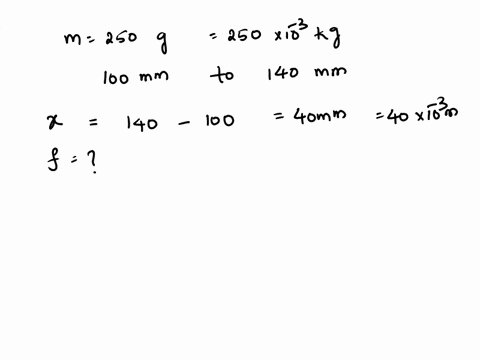 m = 250 g = 250 × 10⁻³ kg
100 mm to 140 mm
x = 140 - 100 = 40mm = 40 × 10⁻³ m
f = ?